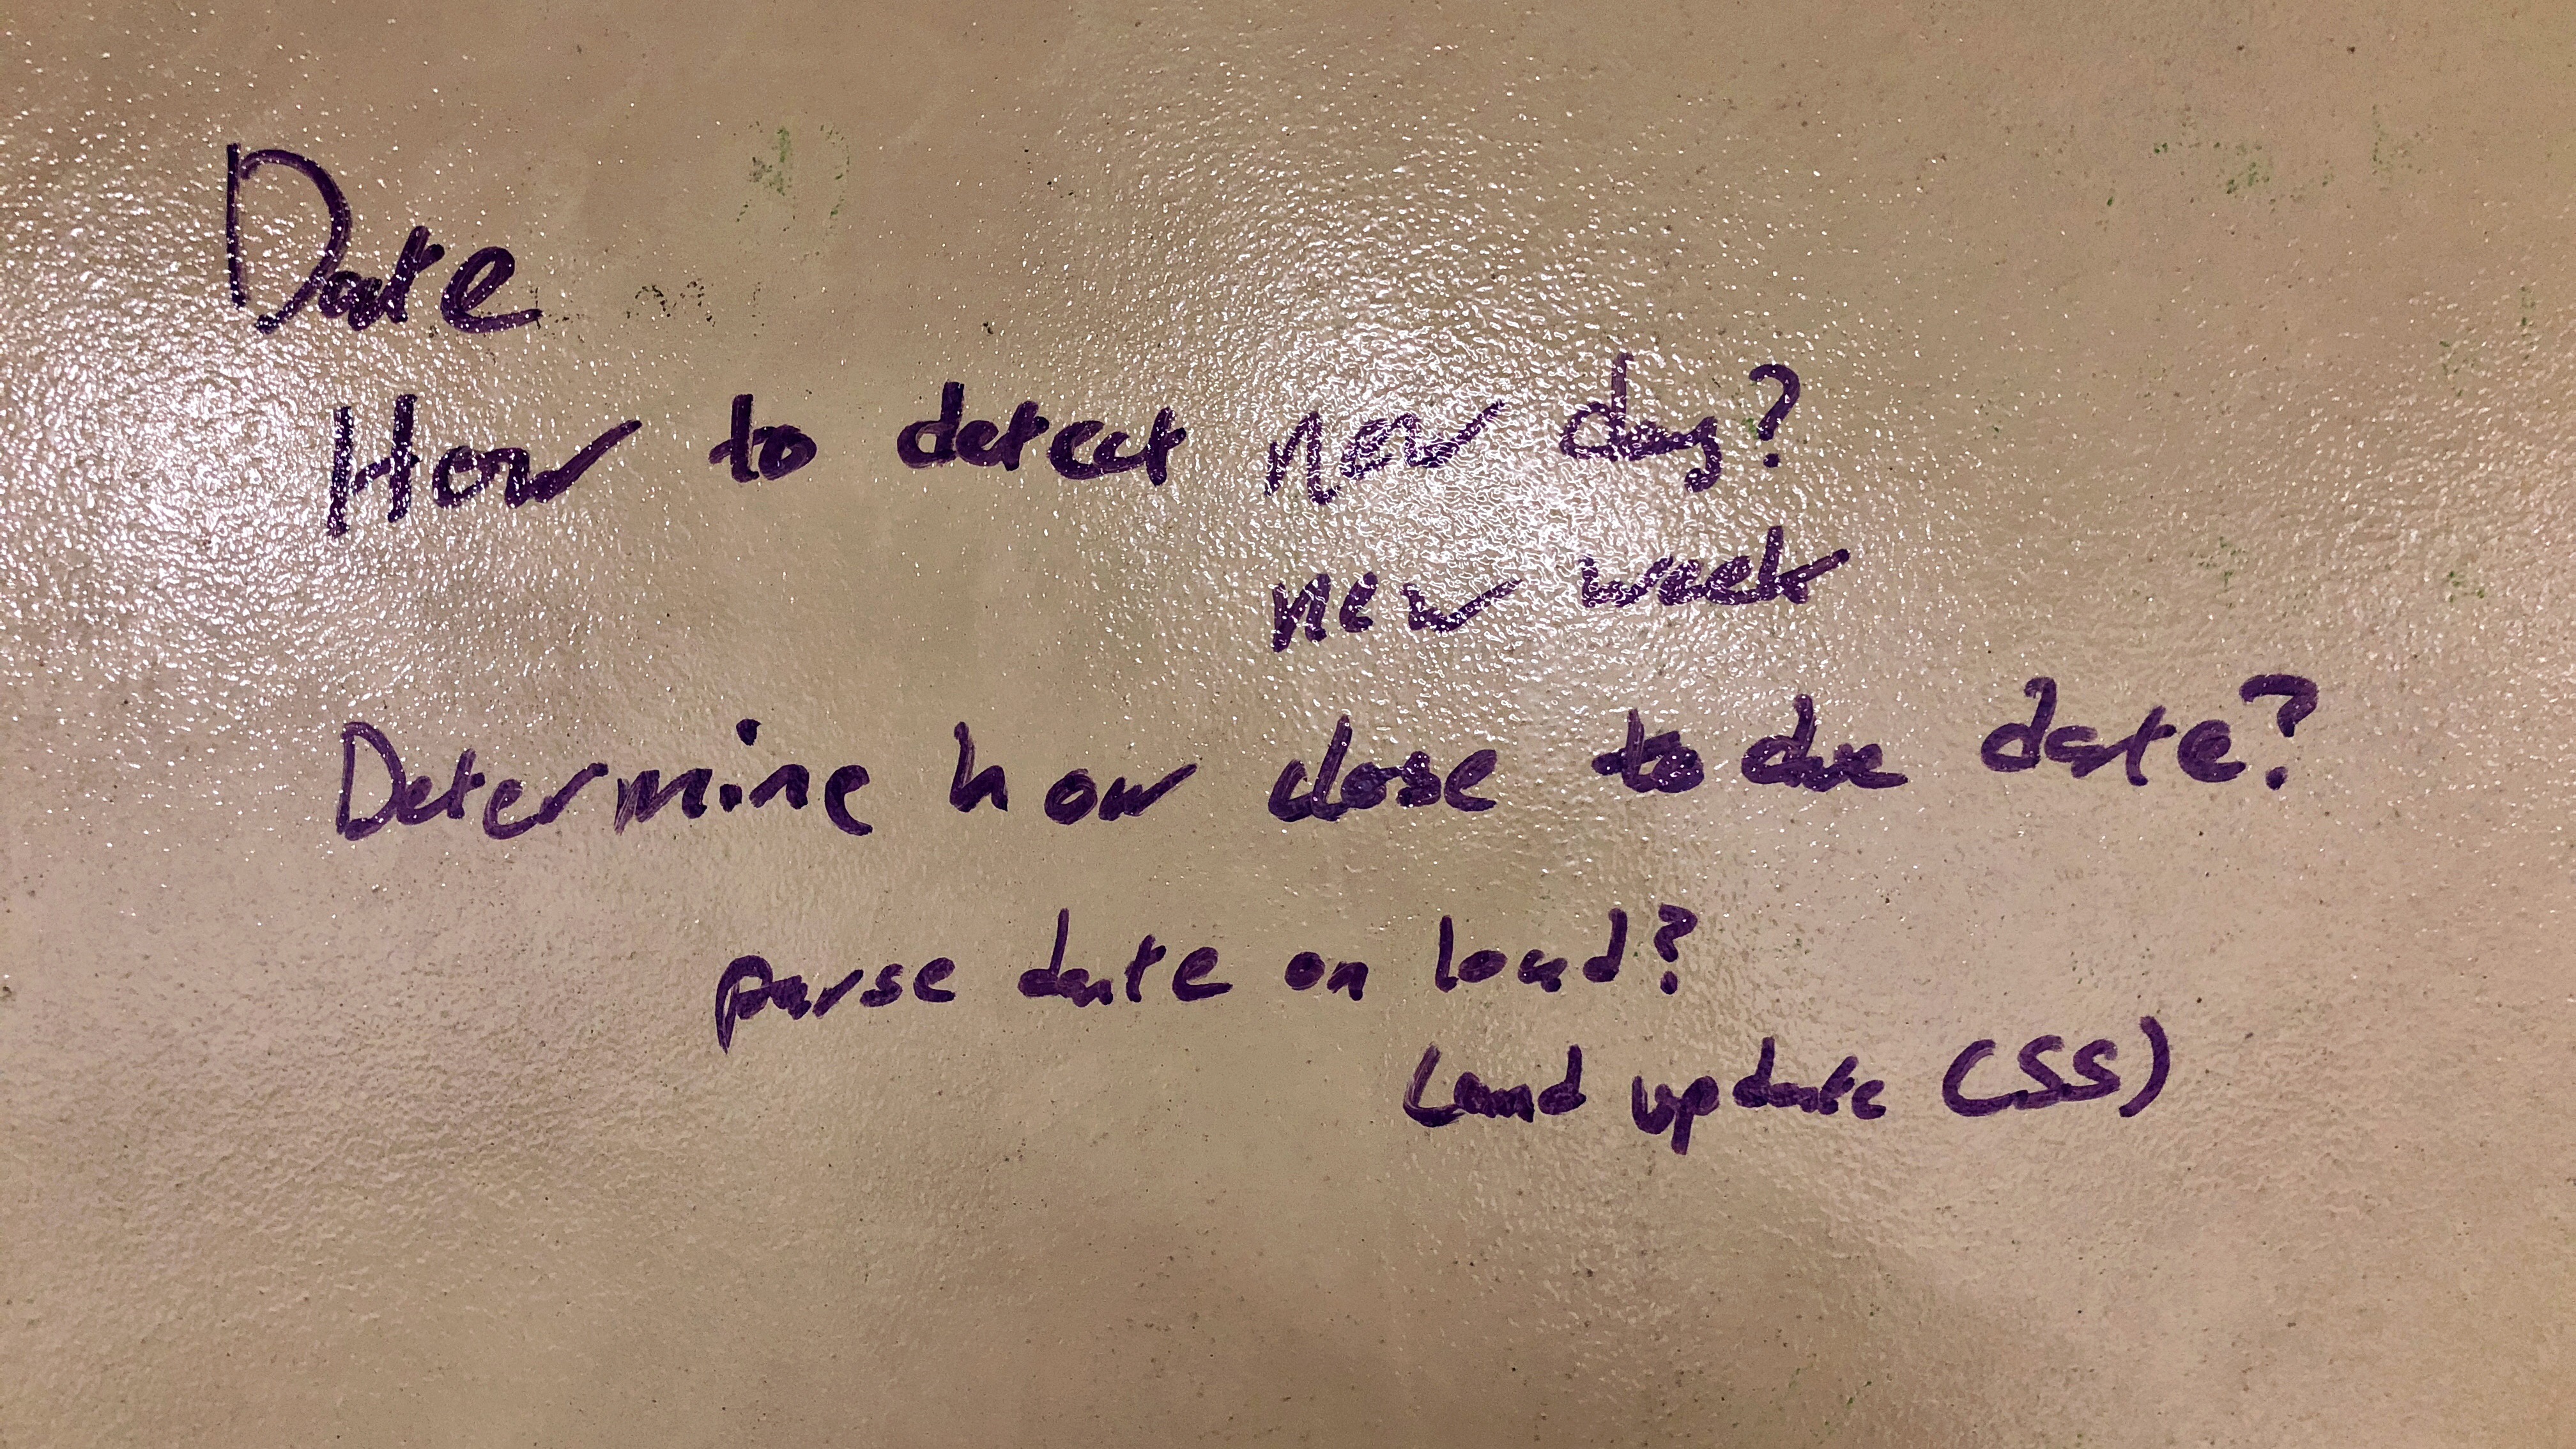 Date
How to detect new day?
new week
Determine how close to due date?
parse date on load?
(and update CSS)